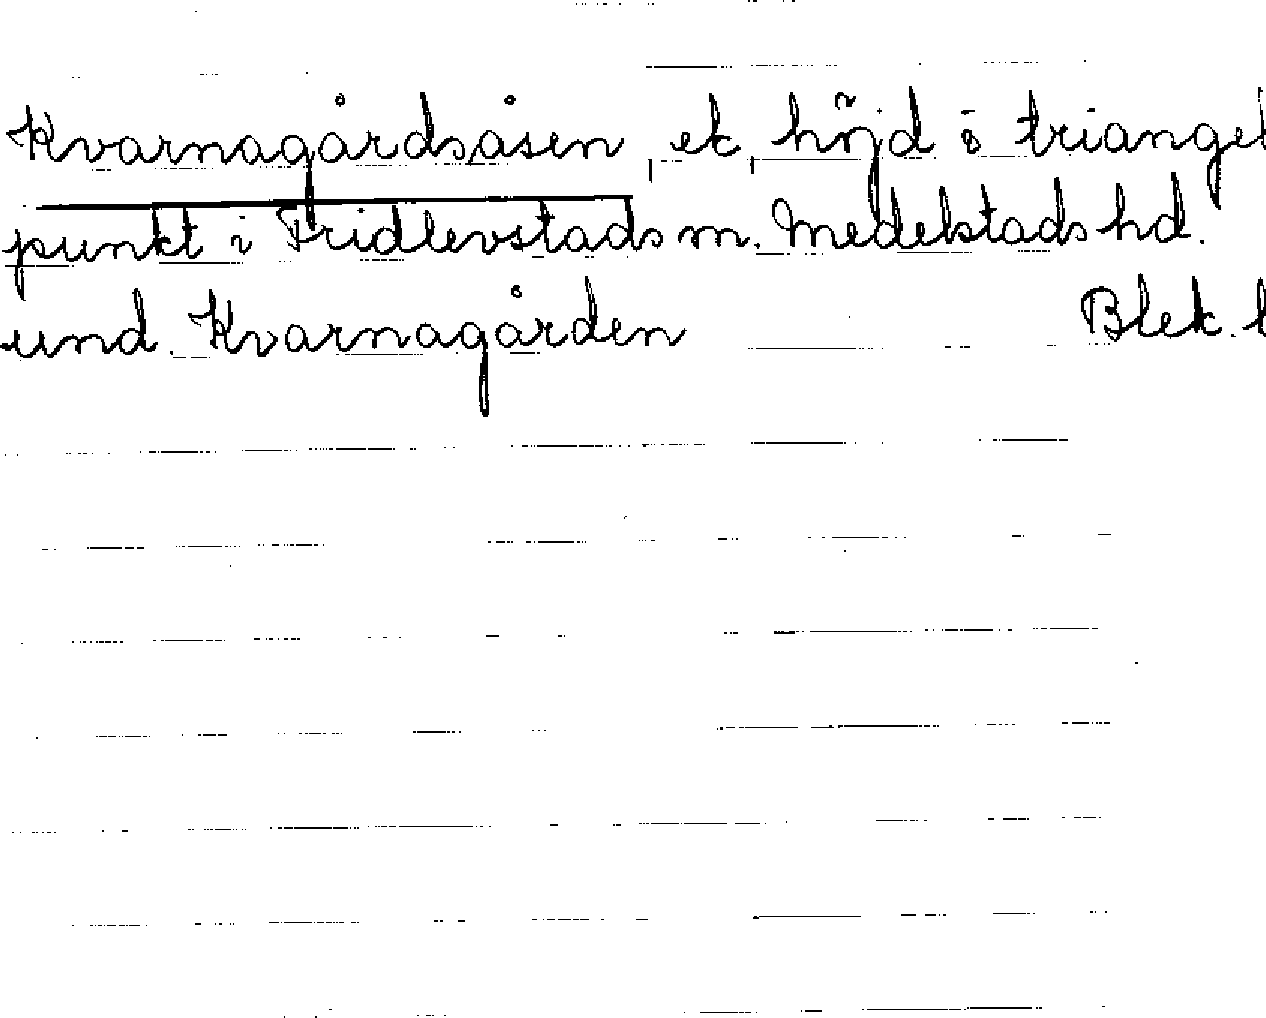 Kvarnagårdsåsen, ek, höjd ö triangel
punkt i Fridlevstads m. Medelstads hd.
und. Kvarnagården Blek. l